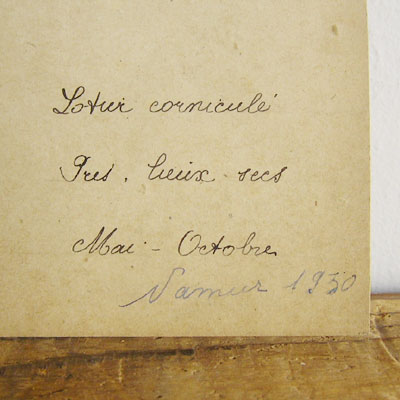 Lotier corniculé
Prés, lieux secs
Mai - Octobre
Namur 1950